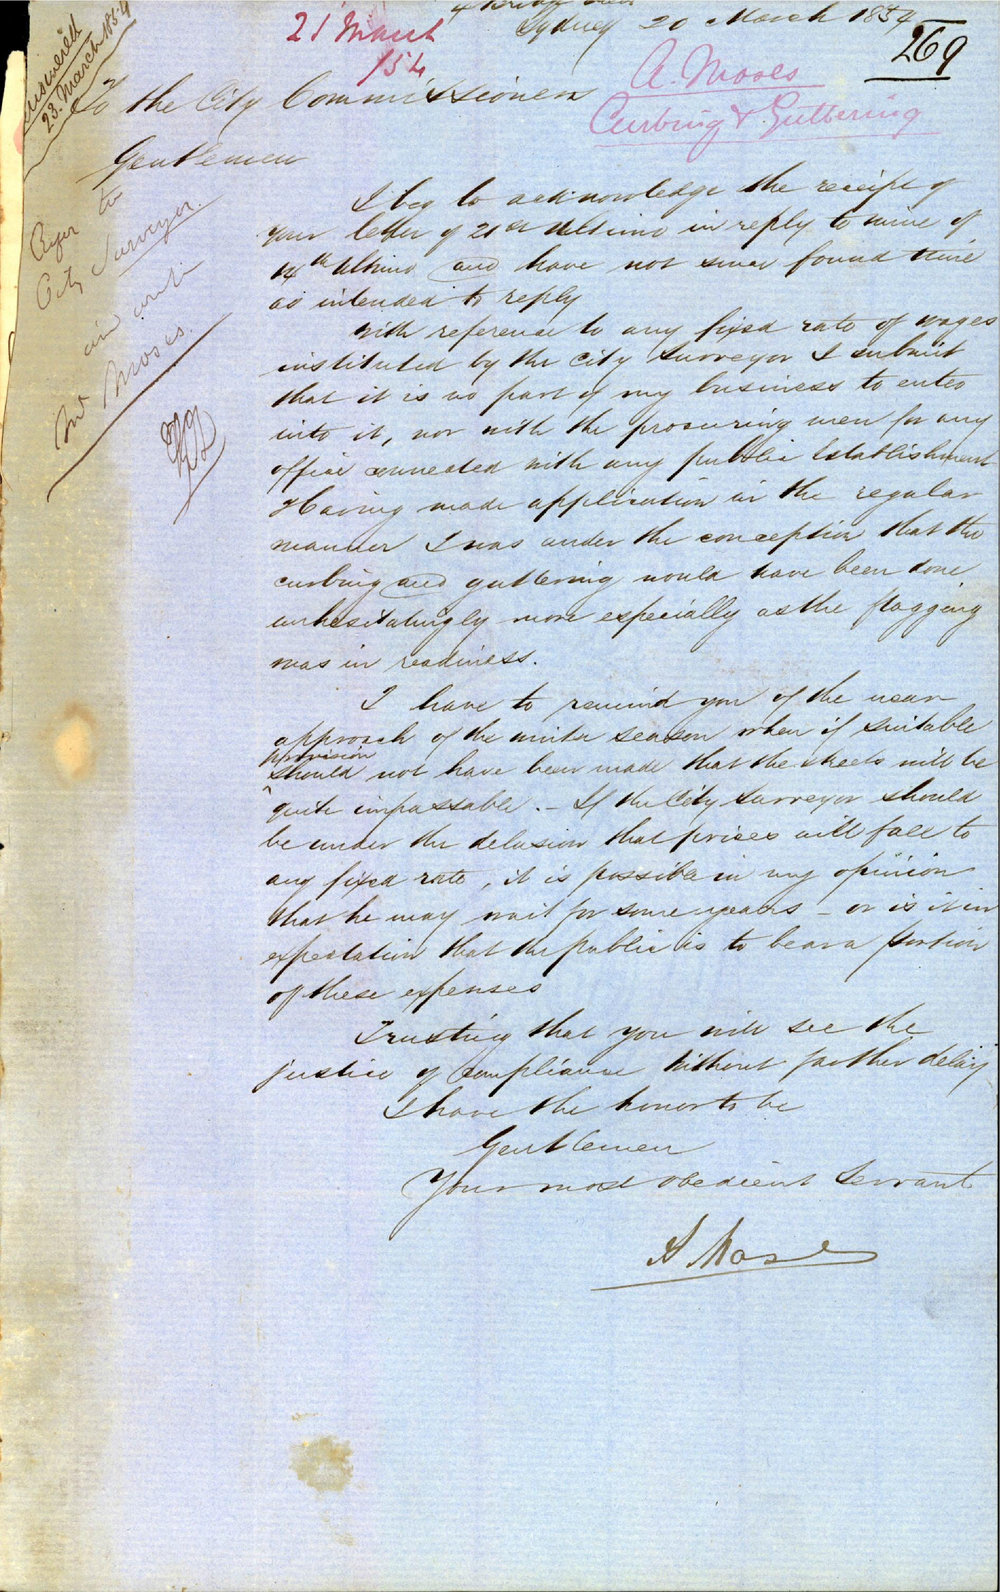 Sydney 20 March 1854
21 March
/54
269
A. Moses
Curbing & Guttering
Answered
23. March 1854
To the City Commissioners
Gentlemen
Refer to
City Surveyor.
Mr Moses.
I beg to acknowledge the receipt of
your letter of 21st Ultimo in reply to mine of
14th Ultimo and have not since found time
as intended to reply
With reference to any fixed rate of wages
instituted by the City Surveyor I submit
that it is no part of my business to enter
into it, nor with the procuring men for any
office connected with any public Establishment
Having made application in the regular
manner I was under the conception that the
curbing and guttering would have been done
unhesitatingly more especially as the flagging
was in readiness.
I have to remind you of the near
approach of the winter season when if suitable
provision
should not have been made that the streets will be
quite impassable. - If the City Surveyor should
be under the delusion that prices will fall to
any fixed rate, it is possible in my opinion
that he may wait for some years - or is it in
expectation that the public is to bear a portion
of these expenses
Trusting that you will see the
justice of compliance without further delay
I have the honor to be
Gentlemen
Your most obedient Servant
A Moses